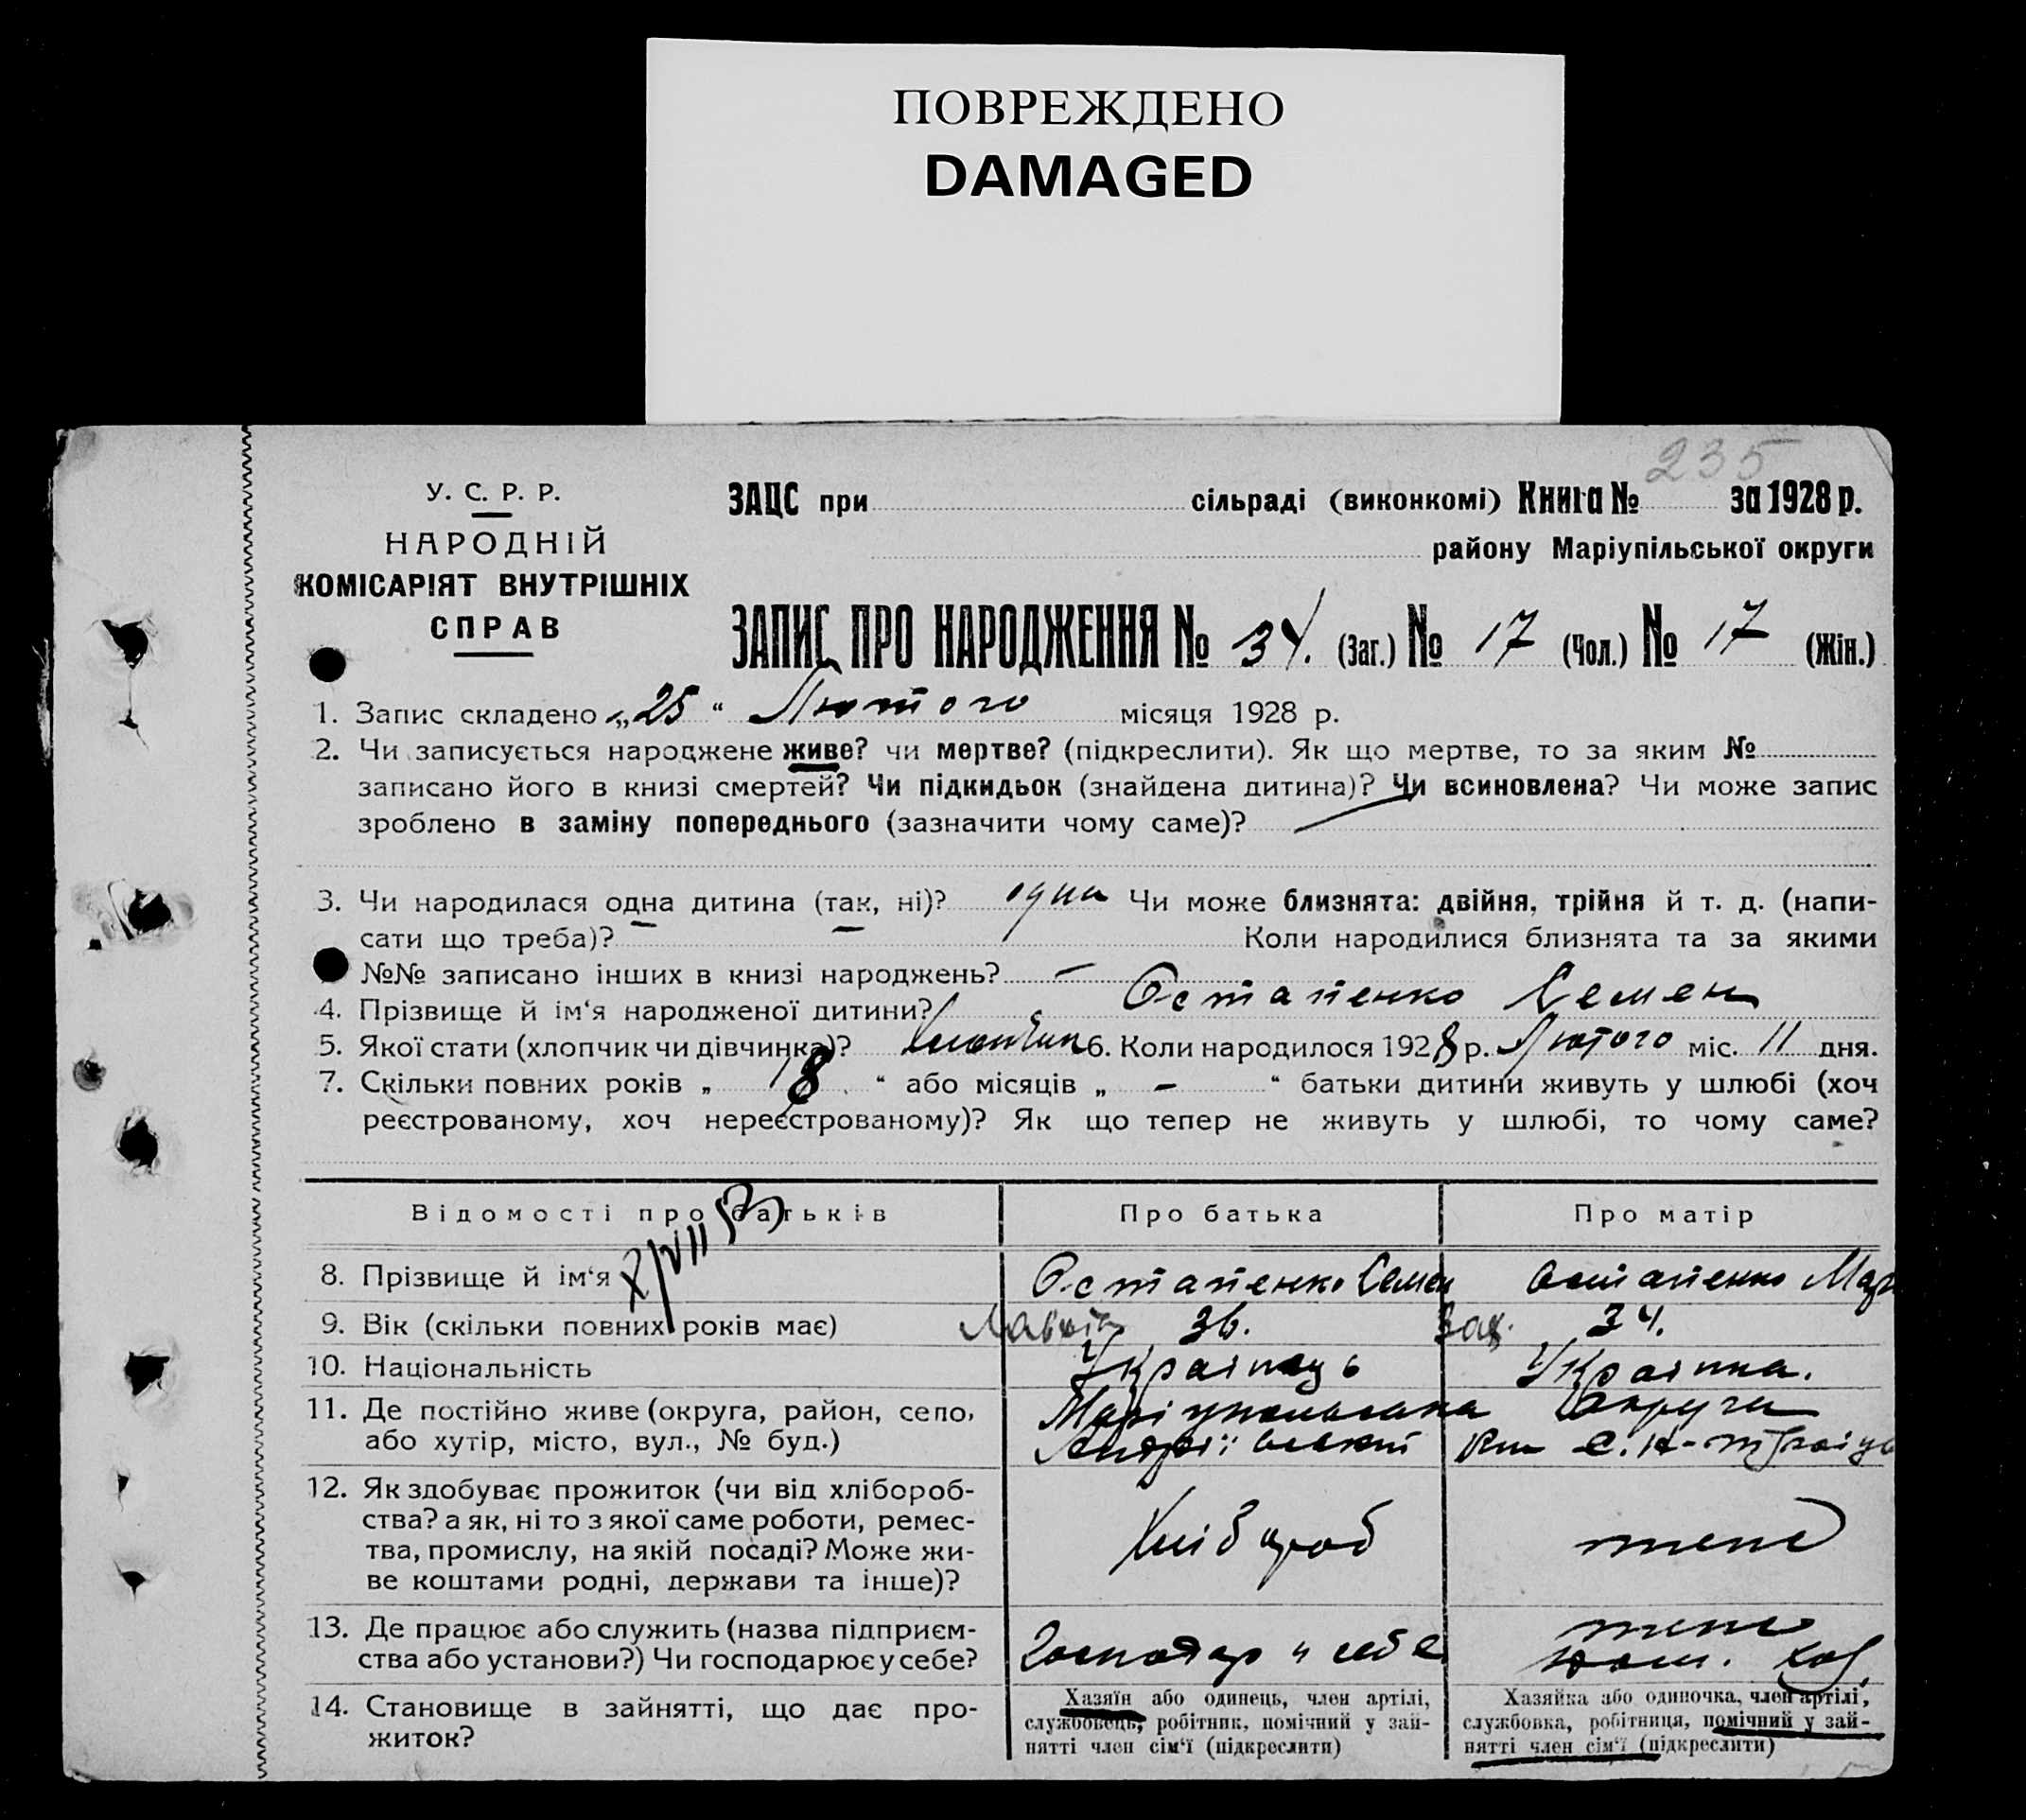 ПОВРЕЖДЕНО
DAMAGED
235
У. С. Р. Р.
НАРОДНІЙ
КОМІСАРІЯТ ВНУТРІШНІХ
СПРАВ
ЗАЦС при сільраді (виконкомі) Книга № за 1928 р.
району Маріупільської округи
ЗАПИС ПРО НАРОДЖЕННЯ № 34. (Заг.) № 17 (Чол.) № 17 (Жін.)
1. Запис складено „25“ Лютого місяця 1928 р.
2. Чи записується народжене живе? чи мертве? (підкреслити). Як що мертве, то за яким №
записано його в книзі смертей? Чи підкидьок (знайдена дитина)? Чи всиновлена? Чи може запис
зроблено в заміну попереднього (зазначити чому саме)?
3. Чи народилася одна дитина (так, ні)? одна Чи може близнята: двійня, трійня й т. д. (напи-
сати що треба)? Коли народилися близнята та за якими
№№ записано інших в книзі народжень? —
4. Прізвище й ім‘я народженої дитини? Остапенко Семен
5. Якої стати (хлопчик чи дівчинка)? Хлопчик 6. Коли народилося 1928 р. Лютого міс. 11 дня.
7. Скільки повних років „ 18 “ або місяців „ — “ батьки дитини живуть у шлюбі (хоч
реєстрованому, хоч нереєстрованому)? Як що тепер не живуть у шлюбі, то чому саме?
Відомості про батьків Про батька Про матір
8. Прізвище й ім‘я Остапенко Семен Остапенко
9. Вік (скільки повних років має) 36. 34.
10. Національність Українець Українка.
11. Де постійно живе (округа, район, село, Маріупольська Округа
або хутір, місто, вул., № буд.)
12. Як здобуває прожиток (чи від хлібороб-
ства? а як, ні то з якої саме роботи, ремес-
тва, промислу, на якій посаді? Може жи-
ве коштами родні, держави та інше)?
Хлібороб теже
13. Де працює або служить (назва підприєм-
ства або установи?) Чи господарює у себе?
Господар у себе теже
14. Становище в зайнятті, що дає про-
житок?
Хазяїн або одинець, член артілі,
службовець, робітник, помічний у зай-
нятті член сім‘ї (підкреслити)
Хазяйка або одиночка, член артілі,
службовка, робітниця, помічний у зай-
нятті член сім‘ї (підкреслити)